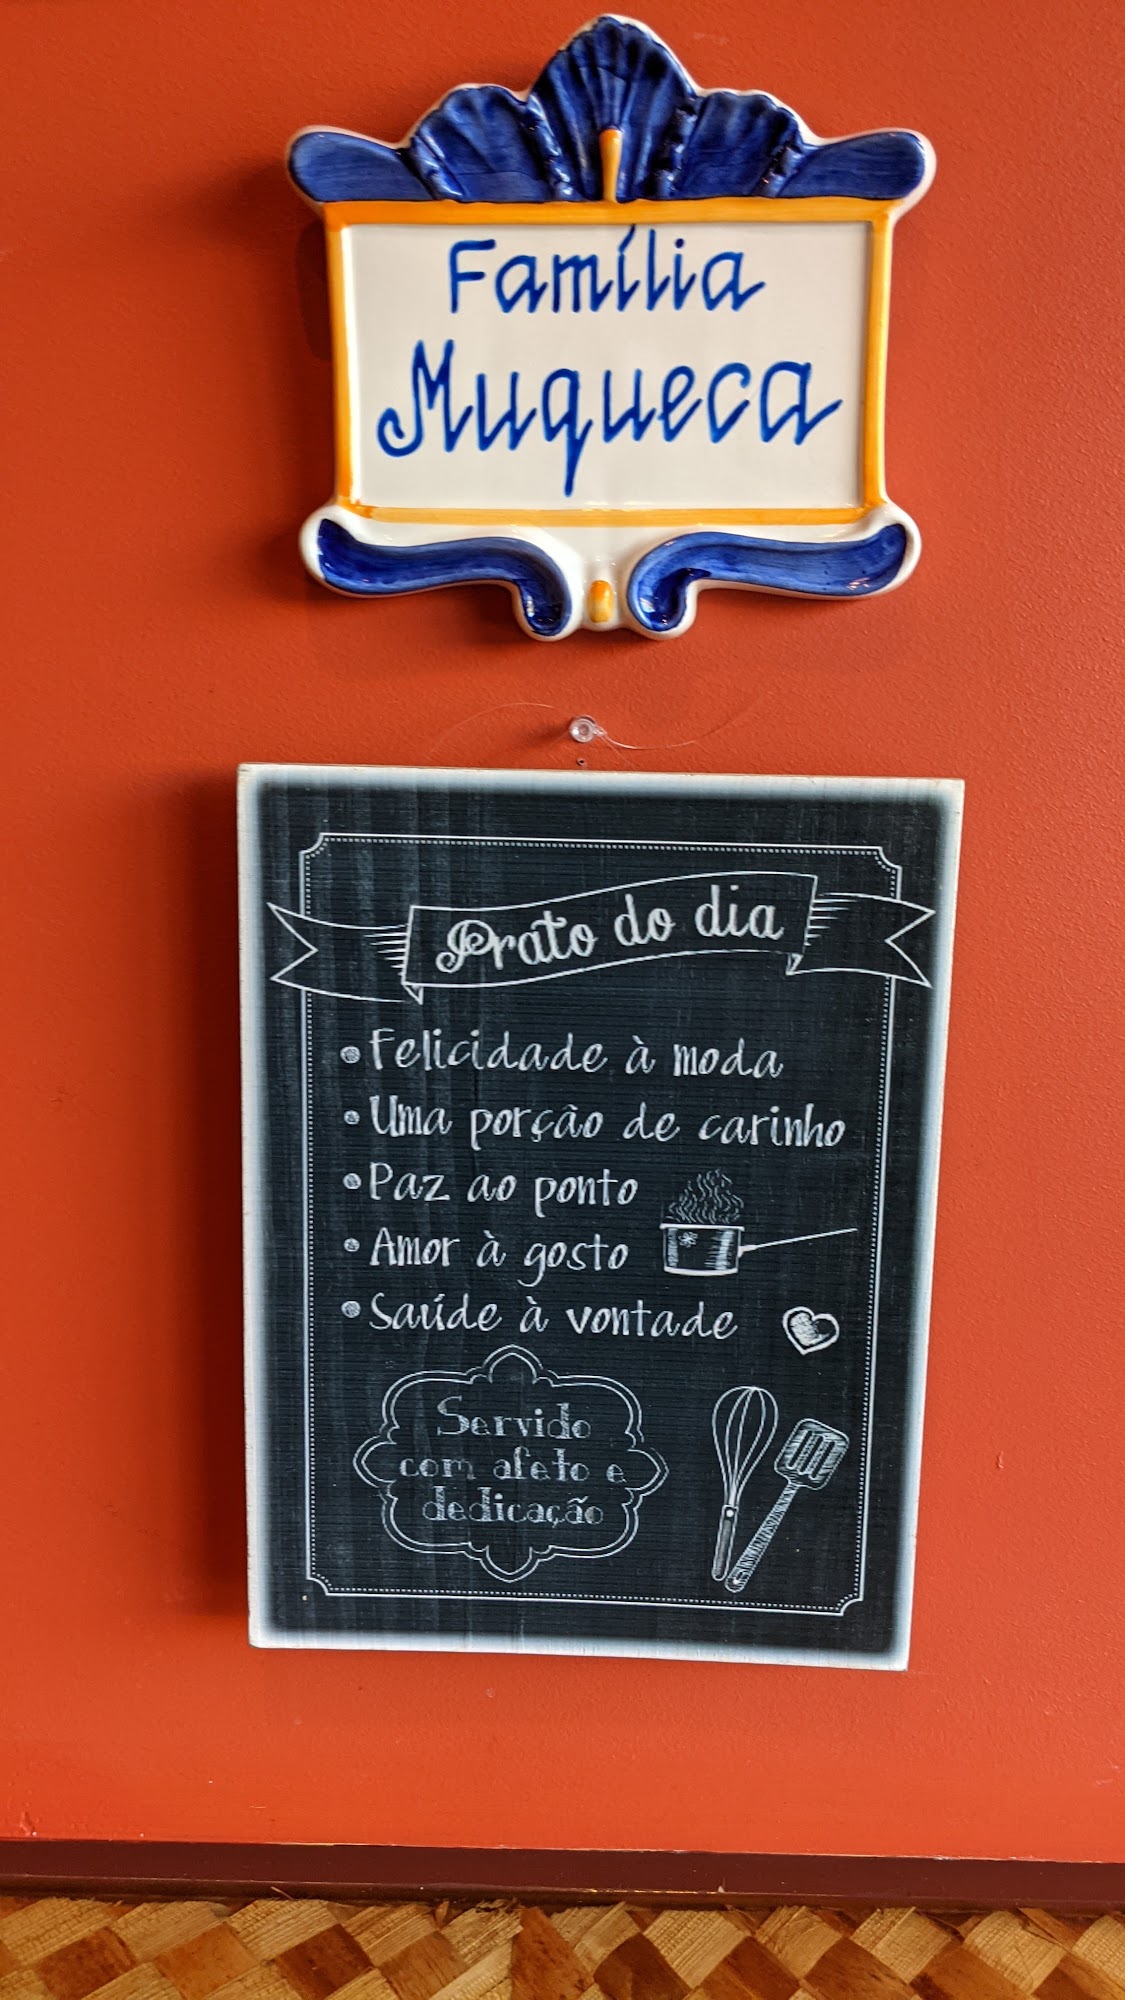 Família
Muqueca
Prato do dia
• Felicidade à moda
• Uma porção de carinho
• Paz ao ponto
• Amor à gosto
• Saúde à vontade
Servido
com afeto e
dedicação